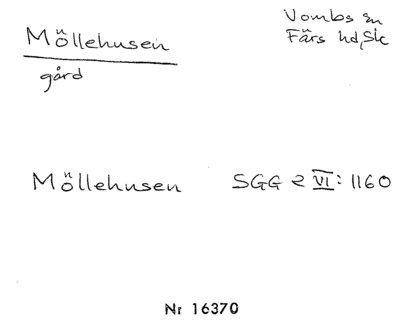 Möllehusen
gård
Vombs sn
Färs hd, Sk
Möllehusen
SGG 2 VI: 1160
Nr 16370